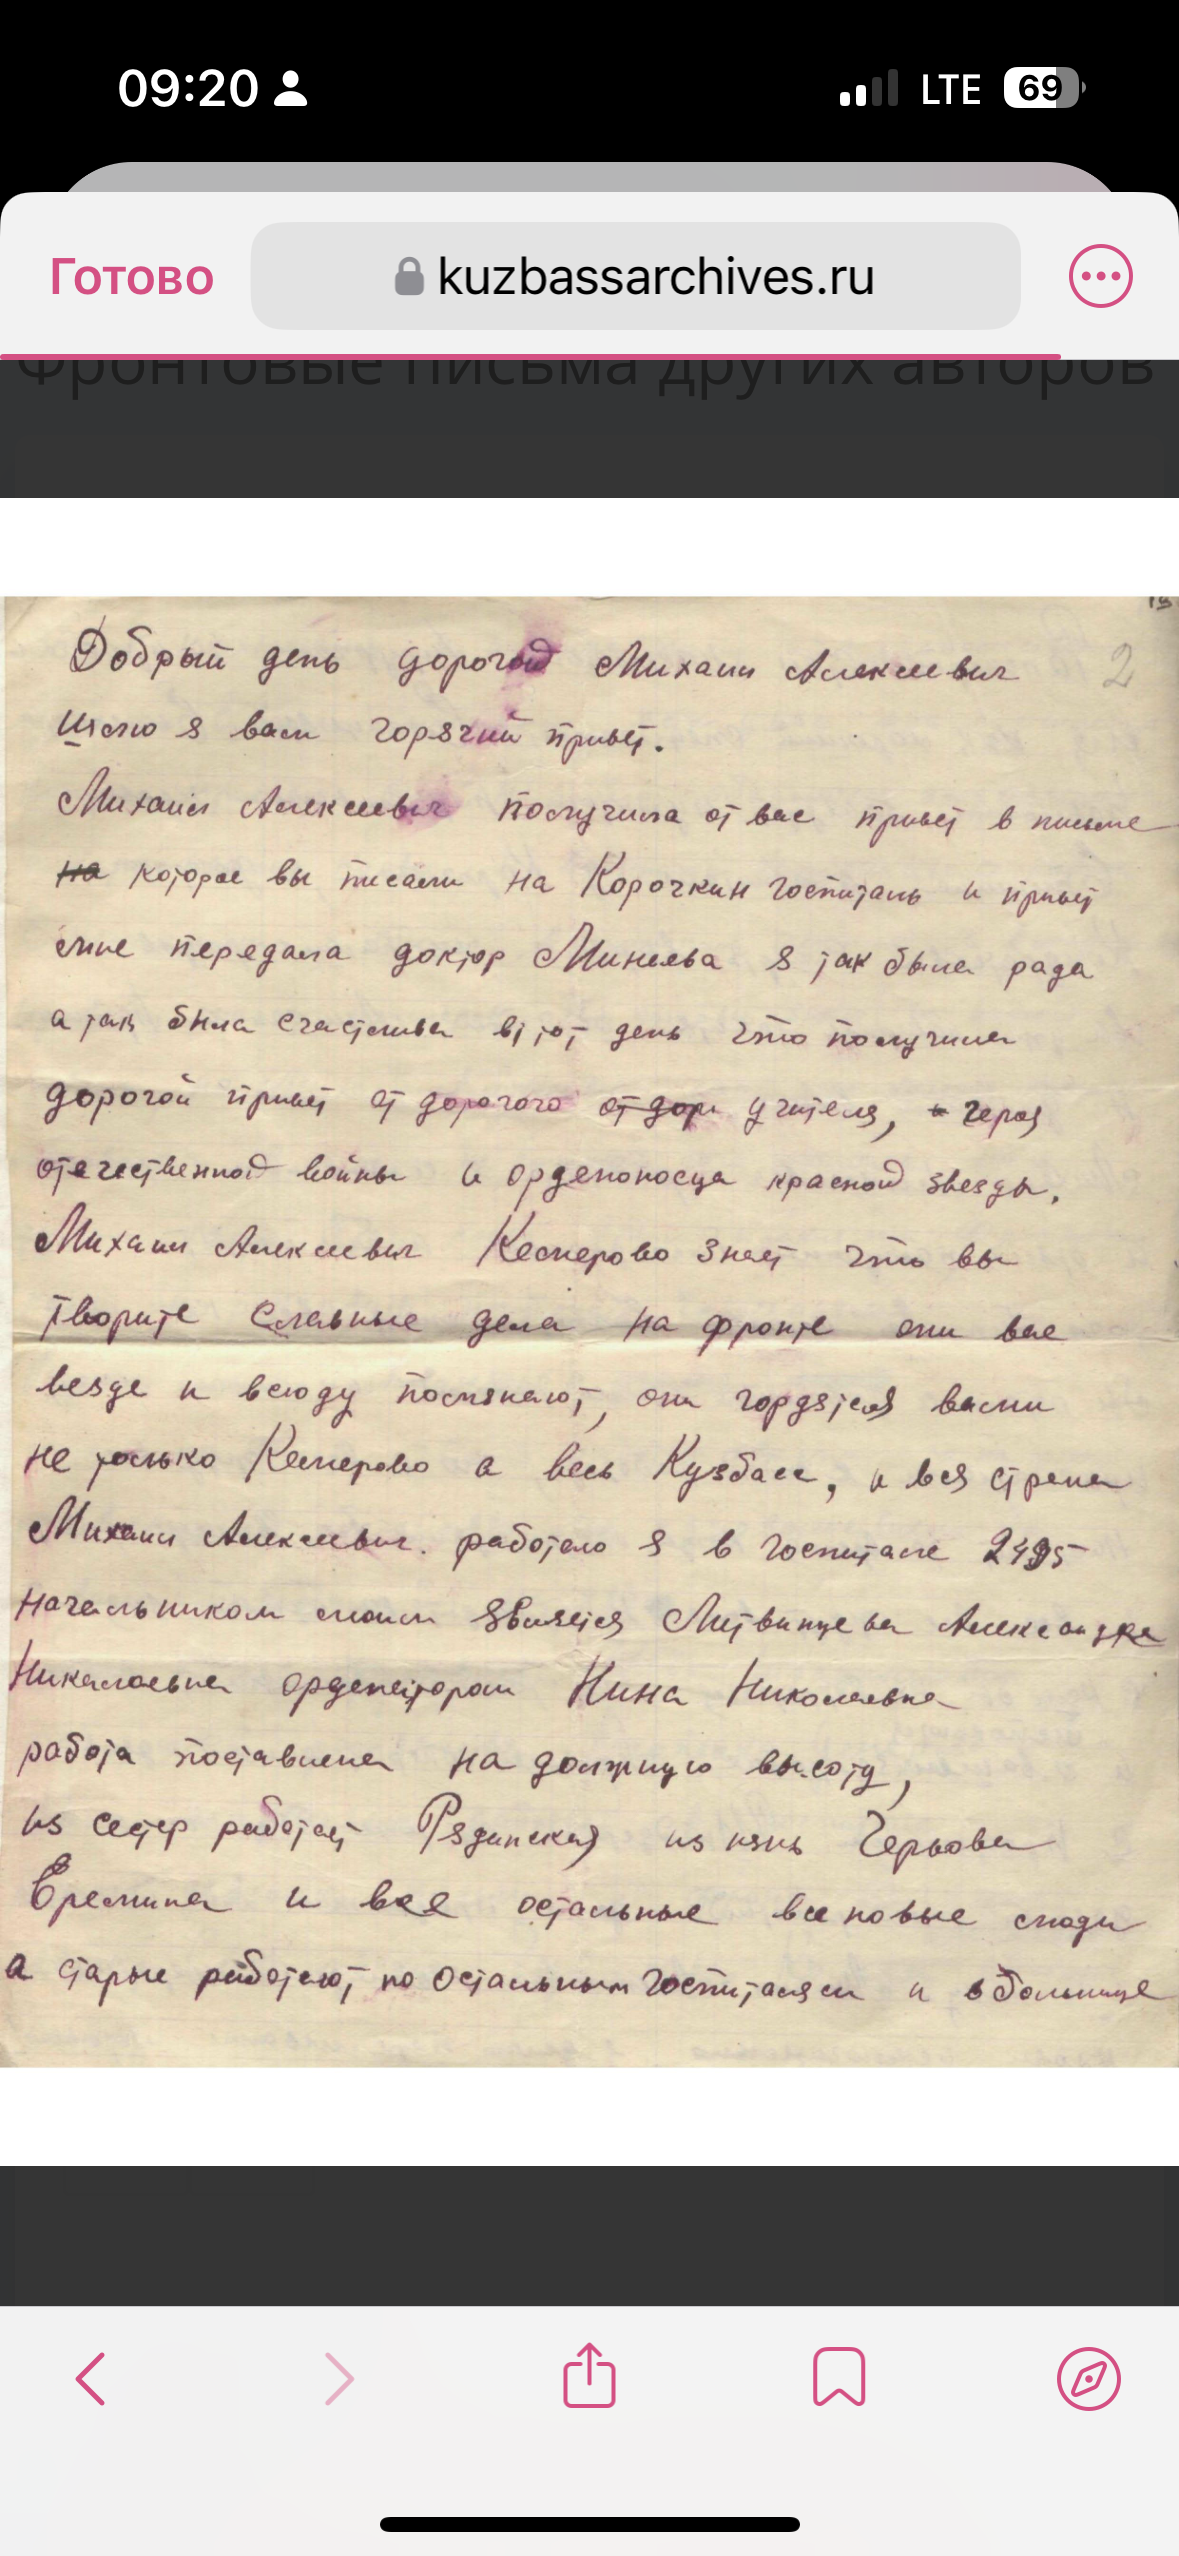 09:20
LTE 69
Готово
kuzbassarchives.ru
Фронтовые письма других авторов
2
Добрый день дорогой Михаил Алексеевич
Шлю я вам горячий привет.
Михаил Алексеевич получила от вас привет в письме
на которое вы писали на Корочкин госпиталь и привет
мне передала доктор Минеева я так была рада
а так была счастлива в тот день что получила
дорогой привет от дорогого от дор учителя, героя
отечественной войны и орденоносца красной звезды.
Михаил Алексеевич Кемерово знает что вы
творите славные дела на фронте они вас
везде и всюду поминают, они гордятся вами
не только Кемерово а весь Кузбасс, и вся страна
Михаил Алексеевич. работаю я в госпитале 2495
начальником моим является Литвинцева Александра
Николаевна Нина Николаевна
работа поставлена на должную высоту,
из сестер работает Рядинская из нянь
Еремина и все остальные все новые люди
а старые работают по остальным госпиталям и в больнице